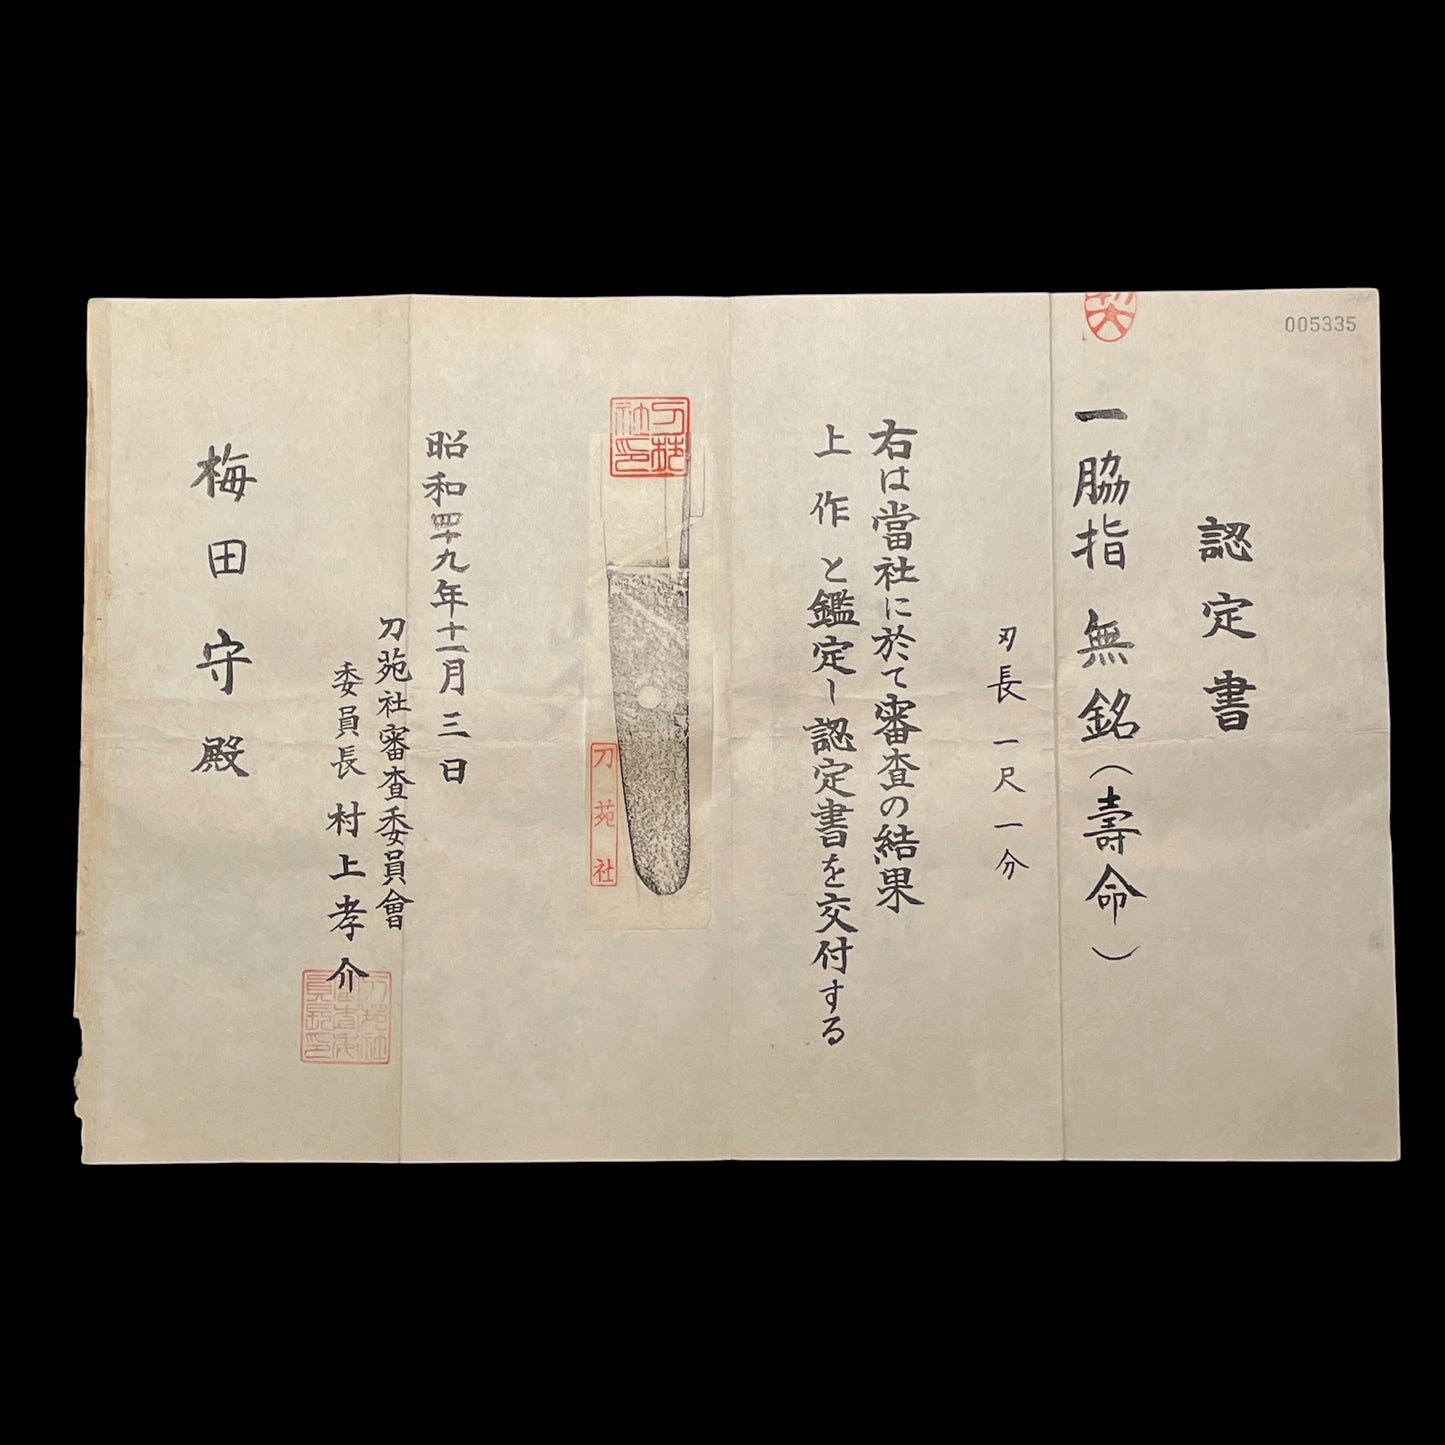 005335
認定書
一 脇指 無銘(壽命)
刃長 一尺一分
右は當社に於て審査の結果
上作と鑑定し認定書を交付する
刀苑社印
刀苑社
昭和四十九年十一月三日
刀苑社審査委員會
委員長 村上孝介
梅田守殿